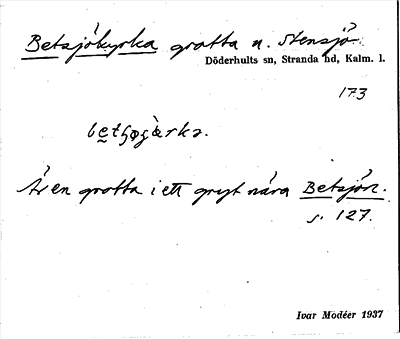 Betsjökyrka grotta n. Stensjö
Döderhults sn, Stranda hd, Kalm. l.
173
Är en grotta i ett gryt nära Betsjön.
s. 127.
Ivar Modéer 1937